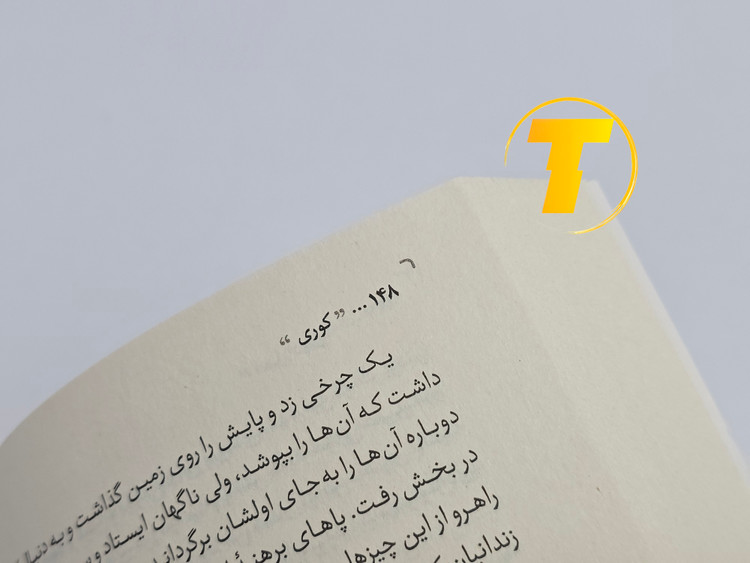 T
۱۴۸ ... ”کوری“
یک چرخی زد و پایش را روی زمین گذاشت و به دنبال
داشت که آن‌ها را بپوشد، ولی ناگهان ایستاد و
دوباره آن‌ها را به‌جای اولشان برگرداند
در بخش رفت. پاهای
راهرو از این چیزها
زندانیان